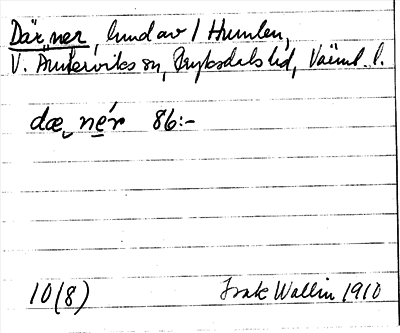 Där ner, hmd av / Humlen,
V. Ämterviks sn, Fryksdals hd, Värml. l.
dæ nér 86:-
10(8) Wallin 1910